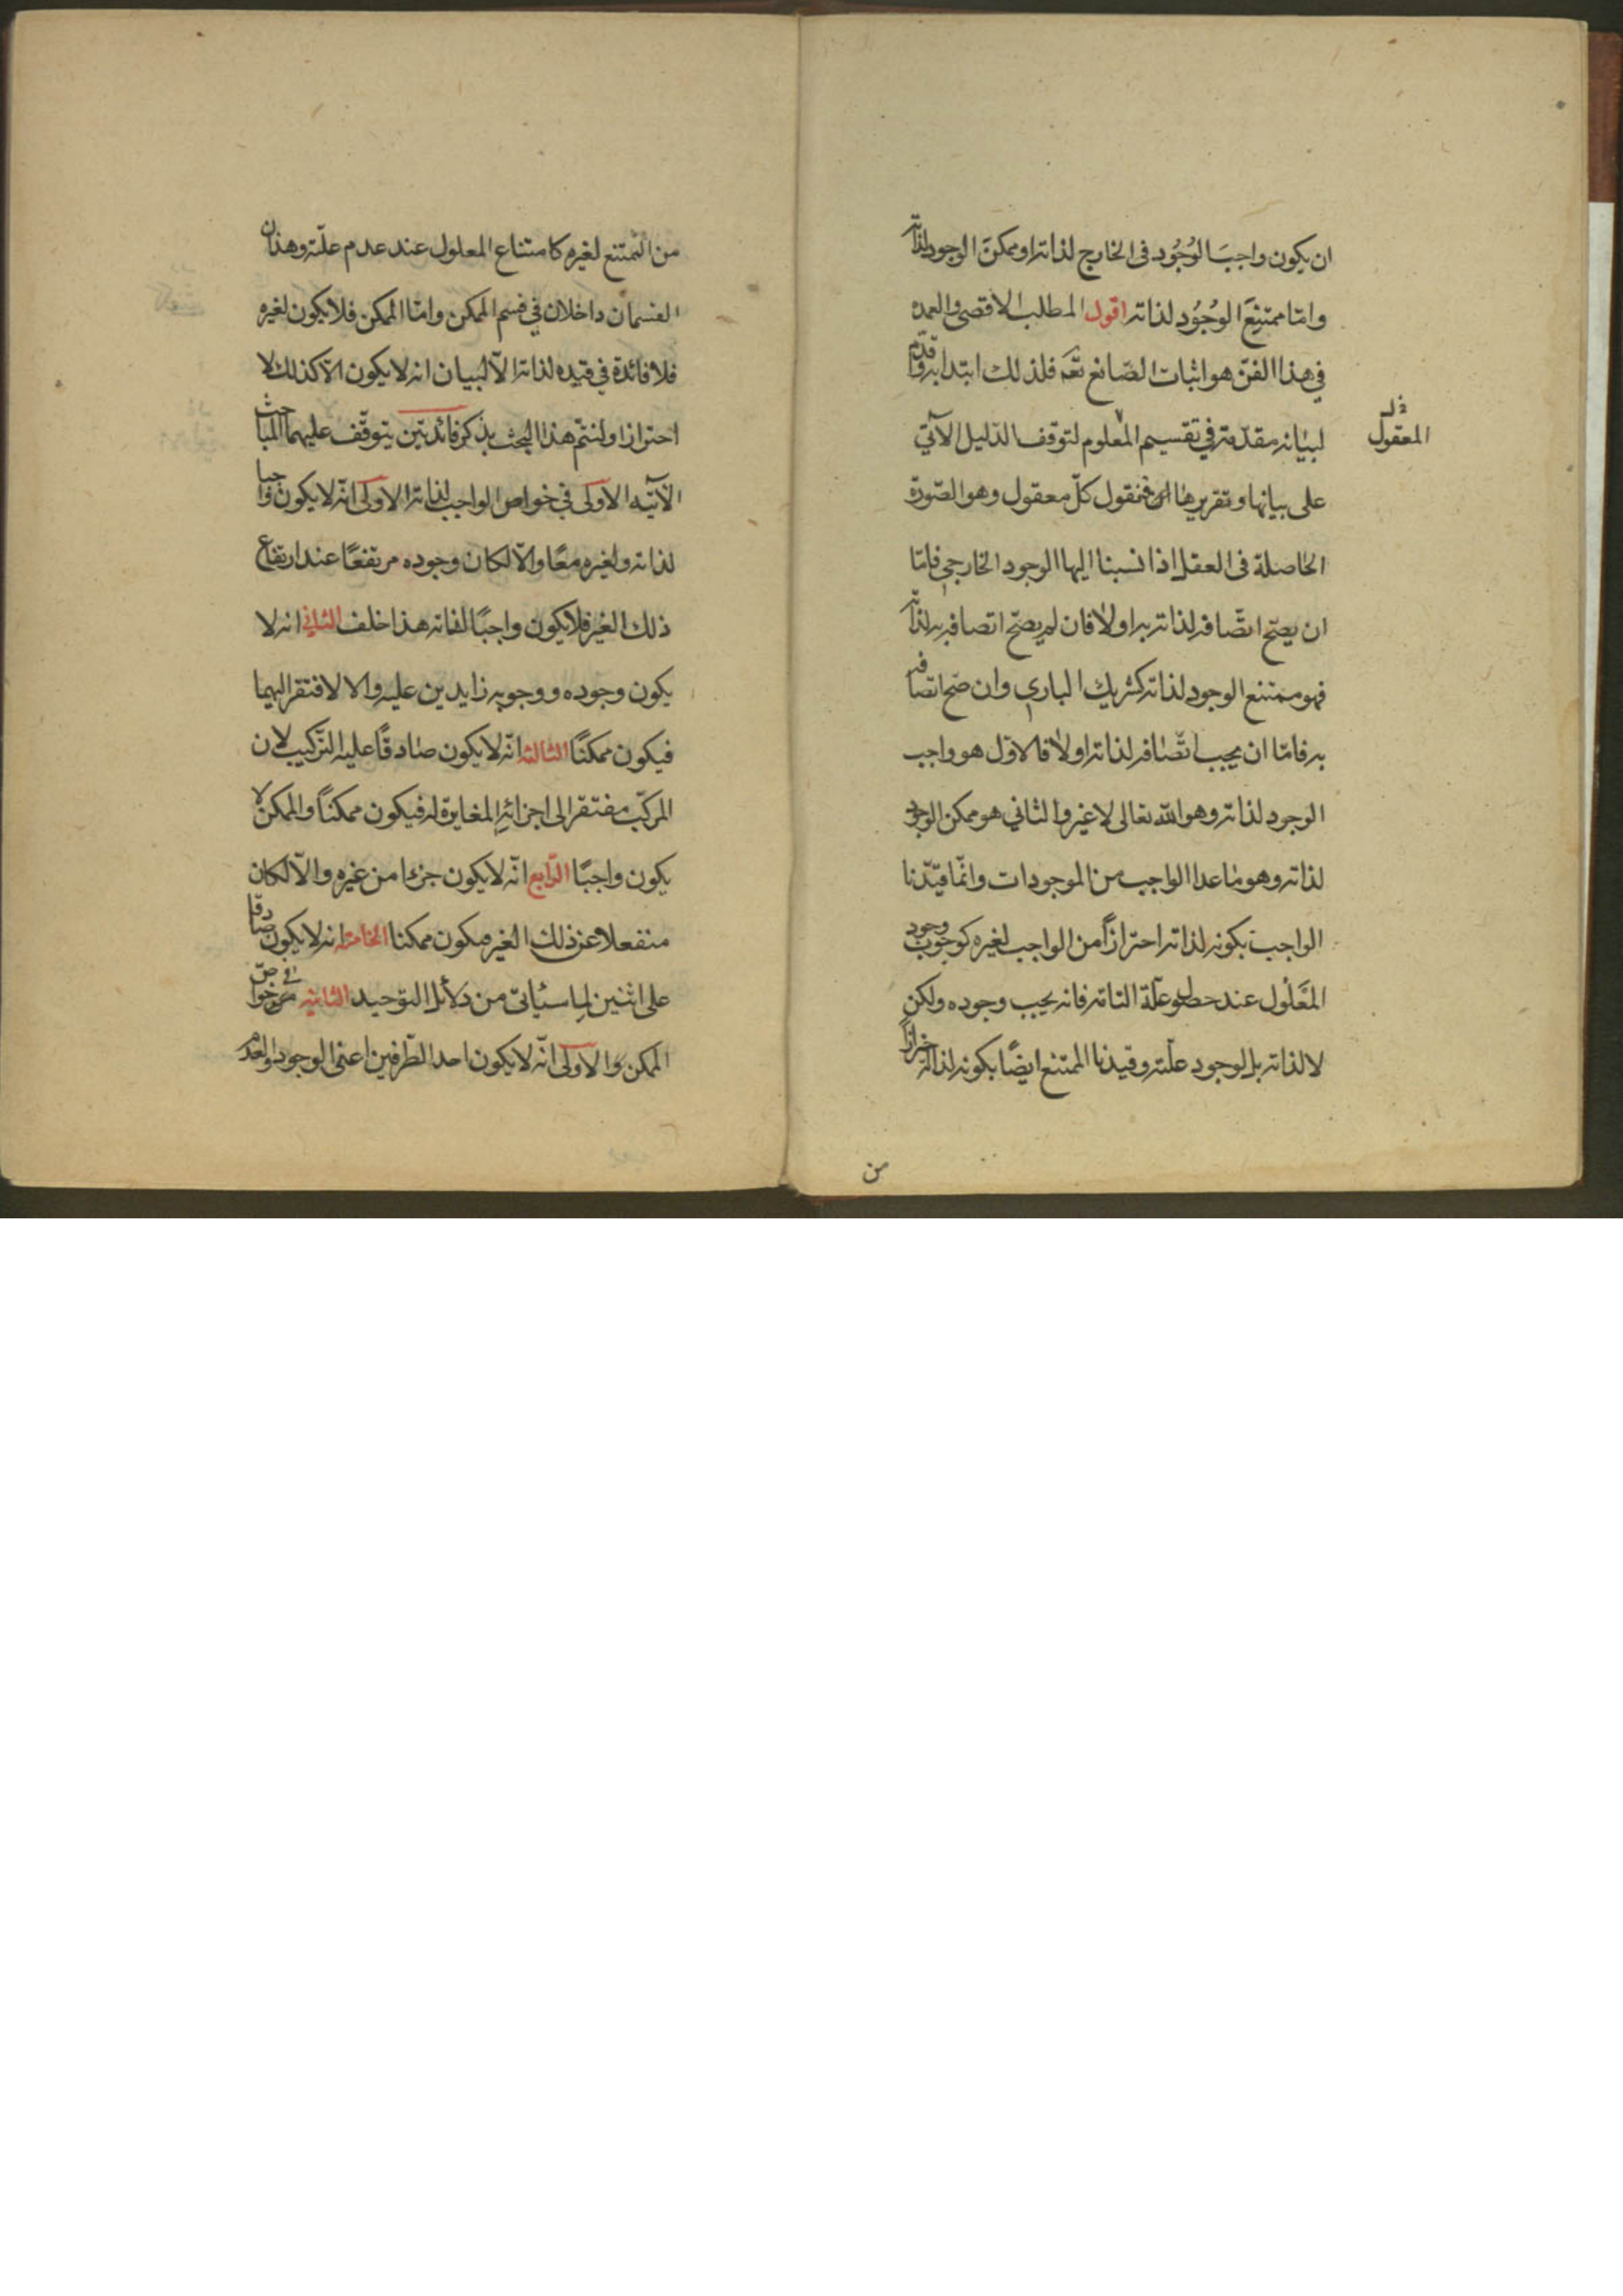 ان يكون واجبَ الوُجُود فى الخارج لذاته او ممكنَ الوجود لذاته
وامّا ممتنعَ الوُجُود لذاته اقول المطلب الاقصى والعمده
في هذا الفنّ هو اثبات الصّانع تعٓ فلذلك ابتدا به وقدّم
لبيانه مقدّمة في تقسيم المعلوم لتوقف الدّليل الآتي
المعقول
على بيانها وتقريرها ان نقول كلّ معقول وهو الصّورة
الحاصلة فى العقل اذا نسبنا اليها الوجود الخارجي فامّا
ان يصحّ اتّصافه لذاته به او لا فان لم يصحّ اتصافه به لذاته
فهو ممتنع الوجود لذاته كشريك الباري وان صحّ اتصافه
به فامّا ان يجب اتّصافه لذاته او لا فالاوّل هو واجب
الوجود لذاته وهو الله تعالى لا غير والثاني هو ممكن الوجود
لذاته وهو ما عدا الواجب من الموجودات وانّما قيّدنا
الواجب بكونه لذاته احترازاً من الواجب لغيره كوجوب وجود
المَعْلُول عند حصول علّة التامّه فانه يجب وجوده ولكن
لا لذاته بل لوجود علّته وقيدنا الممتنع ايضًا بكونه لذاته احترازاً
من
من الممتنع لغيره كامتناع المعلول عند عدم علّته وهذان
القسمان داخلان في قسم الممكن وامّا الممكن فلا يكون لغيره
فلا فائدة في قيده لذاته الّا لبيان انه لا يكون الّا كذلك لا
احترازا ولنتمّ هذا البحث بذكر فائدتين يتوقّف عليهما المباحث
الآتيه الاولى في خواص الواجب لذاته الاولى انّه لا يكون واجبا
لذاته ولغيره معًا والّا لكان وجوده مرتفعًا عند ارتفاع
ذلك الغير فلا يكون واجبًا لذاته هذا خلف الثاني انه لا
يكون وجوده ووجوبه زايدين عليه والا لافتقر اليهما
فيكون ممكنًا الثالثه انّه لا يكون صادقًا عليه التركيب لان
المركّب مفتقر الى اجزائه المغايرة له فيكون ممكناً والممكن لا
يكون واجبًا الرّابع انّه لا يكون جزءا من غيره والّا لكان
منفعلا عن ذلك الغير فيكون ممكنا الخامسه انه لا يكون صادقا
على اثنين لما سيأتي من دلائل التوحيد الثانيه في خواصّ
الممكن والاولى انّه لا يكون احد الطّرفين اعنى الوجود والعدم